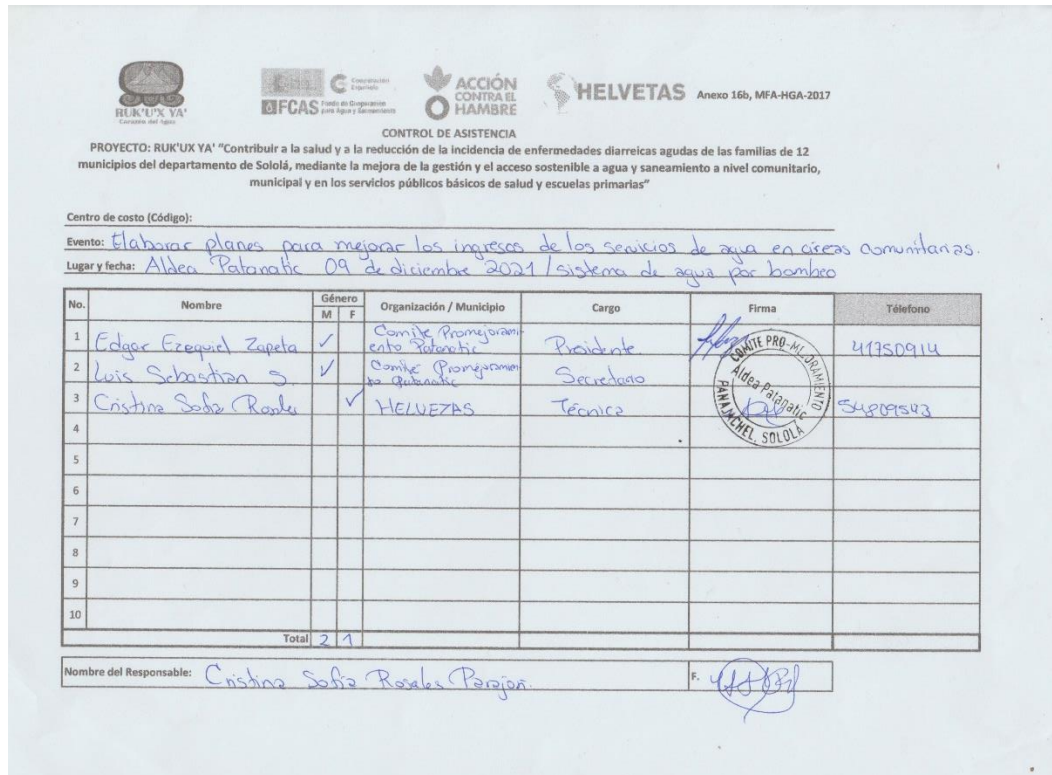 RUK'U'X YA'
Corazón del Agua
Cooperación Española
FCAS Fondo de Cooperación para Agua y Saneamiento
ACCIÓN CONTRA EL HAMBRE
HELVETAS Anexo 16b, MFA-HGA-2017
CONTROL DE ASISTENCIA
PROYECTO: RUK'UX YA' "Contribuir a la salud y a la reducción de la incidencia de enfermedades diarreicas agudas de las familias de 12
municipios del departamento de Sololá, mediante la mejora de la gestión y el acceso sostenible a agua y saneamiento a nivel comunitario,
municipal y en los servicios públicos básicos de salud y escuelas primarias"
Centro de costo (Código):
Evento: Elaborar planes para mejorar los ingresos de los servicios de agua en areas comunitarias.
Lugar y fecha: Aldea Patanatic 09 de diciembre 2021 / sistema de agua por bombeo
No. Nombre Género M F Organización / Municipio Cargo Firma Télefono
1 Edgar Ezequiel Zapeta ✓ Comite Promejoramiento Patanatic Presidente 41750914
2 Luis Sebastian S. ✓ Comite Promejoramiento Patanatic Secretario
3 Cristina Sofia Rosales ✓ HELVETAS Técnica 54809543
COMITE PRO-MEJORAMIENTO
Aldea Patanatic
PANAJACHEL, SOLOLA
4
5
6
7
8
9
10
Total 2 1
Nombre del Responsable: Cristina Sofía Rosales Parajón. F.